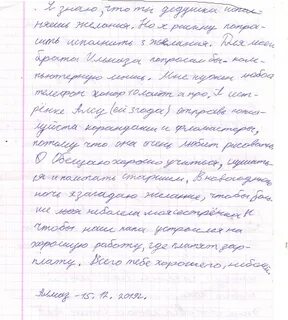 . Я знаю, что ты дедушка испол-
няешь желания. Но я рискну попро-
сить исполнить 3 желания. Для моего
братца Ильяза попросил бы ком-
пьютерную мышь. Мне нужен новый
телефон хонор 10 лайт а про. А сест-
рёнке Алсу (ей 3 года) отправь пожа-
луйста карандаши и фломастеры,
потому что она очень любит рисовать.
Обещаю хорошо учиться, слушать-
ся и помогать старшим. В новогоднюю
ночь я загадаю желание, чтобы больше
не болела моя сестрёнка и
чтобы наш папа устроился на
хорошую работу, где платят зар-
плату. Всего тебе хорошего, не болей
-15.12.2019г.